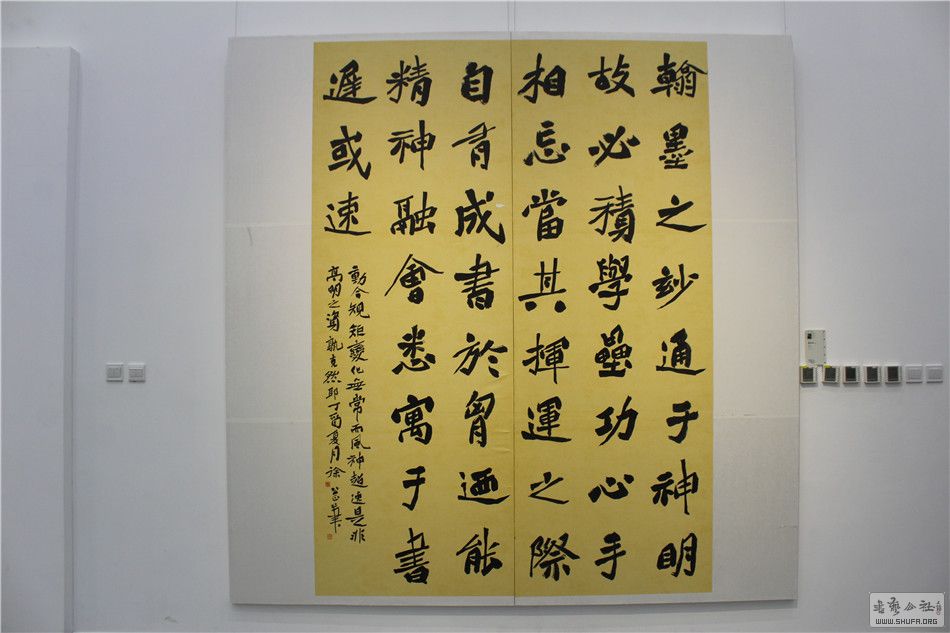 翰墨之妙通于神明
故必積學壘功心手
相忘當其揮運之際
自有成書於胷迺能
精神融會悉寓于書
遲或速
動合規矩變化無常而風神超逸是非
高明之資孰克然耶丁酉夏月徐
書藝公社
WWW.SHUFA.ORG